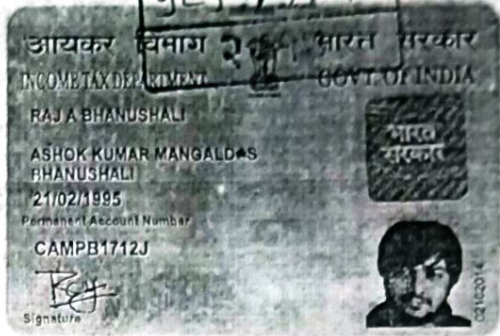 आयकर विभाग
भारत सरकार
INCOME TAX DEPARTMENT
GOVT. OF INDIA
RAJ A BHANUSHALI
ASHOK KUMAR MANGALDAS
BHANUSHALI
21/02/1995
Permanent Account Number
CAMPB1712J
Signature
भारत
सरकार
02102014